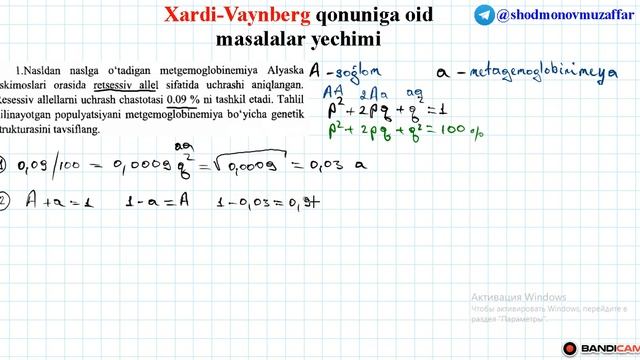 Xardi-Vaynberg qonuniga oid
masalalar yechimi
@shodmonovmuzaffar
1.Nasldan naslga o'tadigan metgemoglobinemiya Alyaska
skimoslari orasida retsessiv allel sifatida uchrashi aniqlangan.
Resessiv allellarni uchrash chastotasi 0.09 % ni tashkil etadi. Tahlil
ilinayotgan populyatsiyani metgemoglobinemiya bo'yicha genetik
trukturasini tavsiflang.
A - soğlom a - metagemoglobinimeya
AA 2Aa aa
p² + 2pq + q² = 1
p² + 2pq + q² = 100 %
aa
1 0,09/100 = 0,0009 q² = √0,0009 = 0,03 a
2 A + a = 1 1 - a = A 1 - 0,03 = 0,97
Активация Windows
Чтобы активировать Windows, перейдите в
раздел "Параметры".
BANDICAM